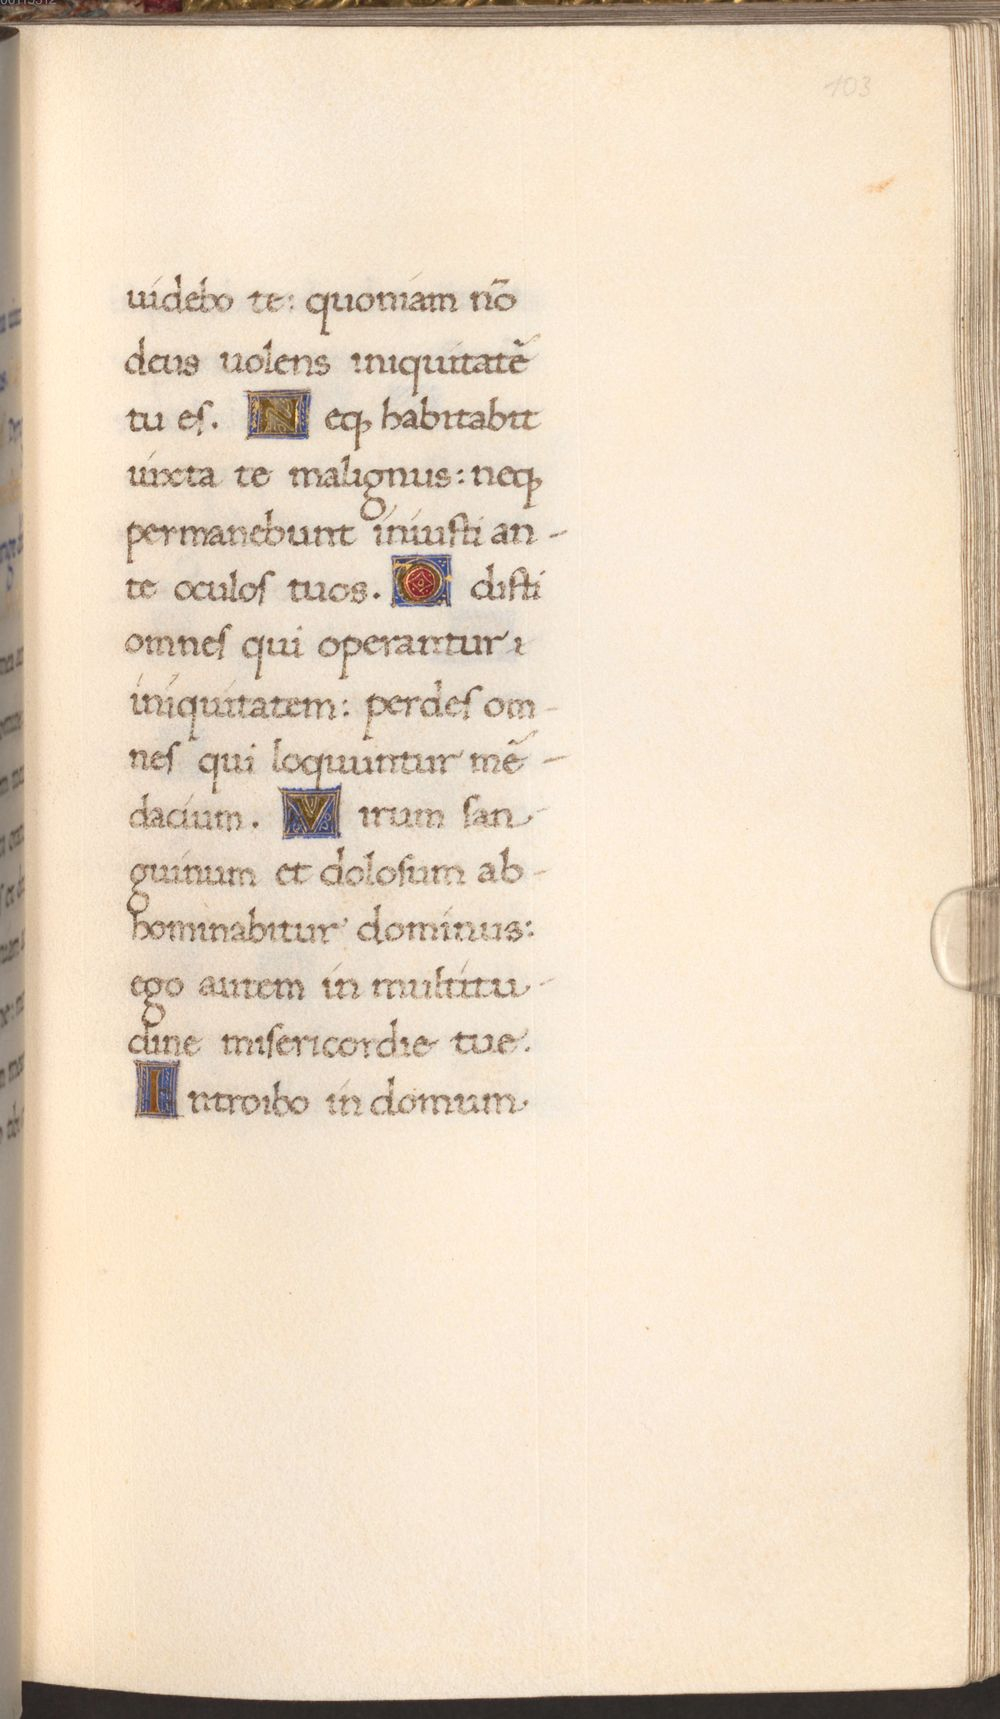 103
uidebo te: quoniam nõ
deus uolens iniquitatẽ
tu eſ. Neqꝫ habitabit
uixta te malignus: neqꝫ
permanebunt iniuſti an-
te oculoſ tuos. Odiſti
omneſ qui operantur
iniquitatem: perdeſ om-
neſ qui loquuntur mẽ-
dacium. Virum ſan-
guinum et doloſum ab-
hominabitur dominus:
ego autem in multitu-
dine miſericordie tue.
Introibo in domum